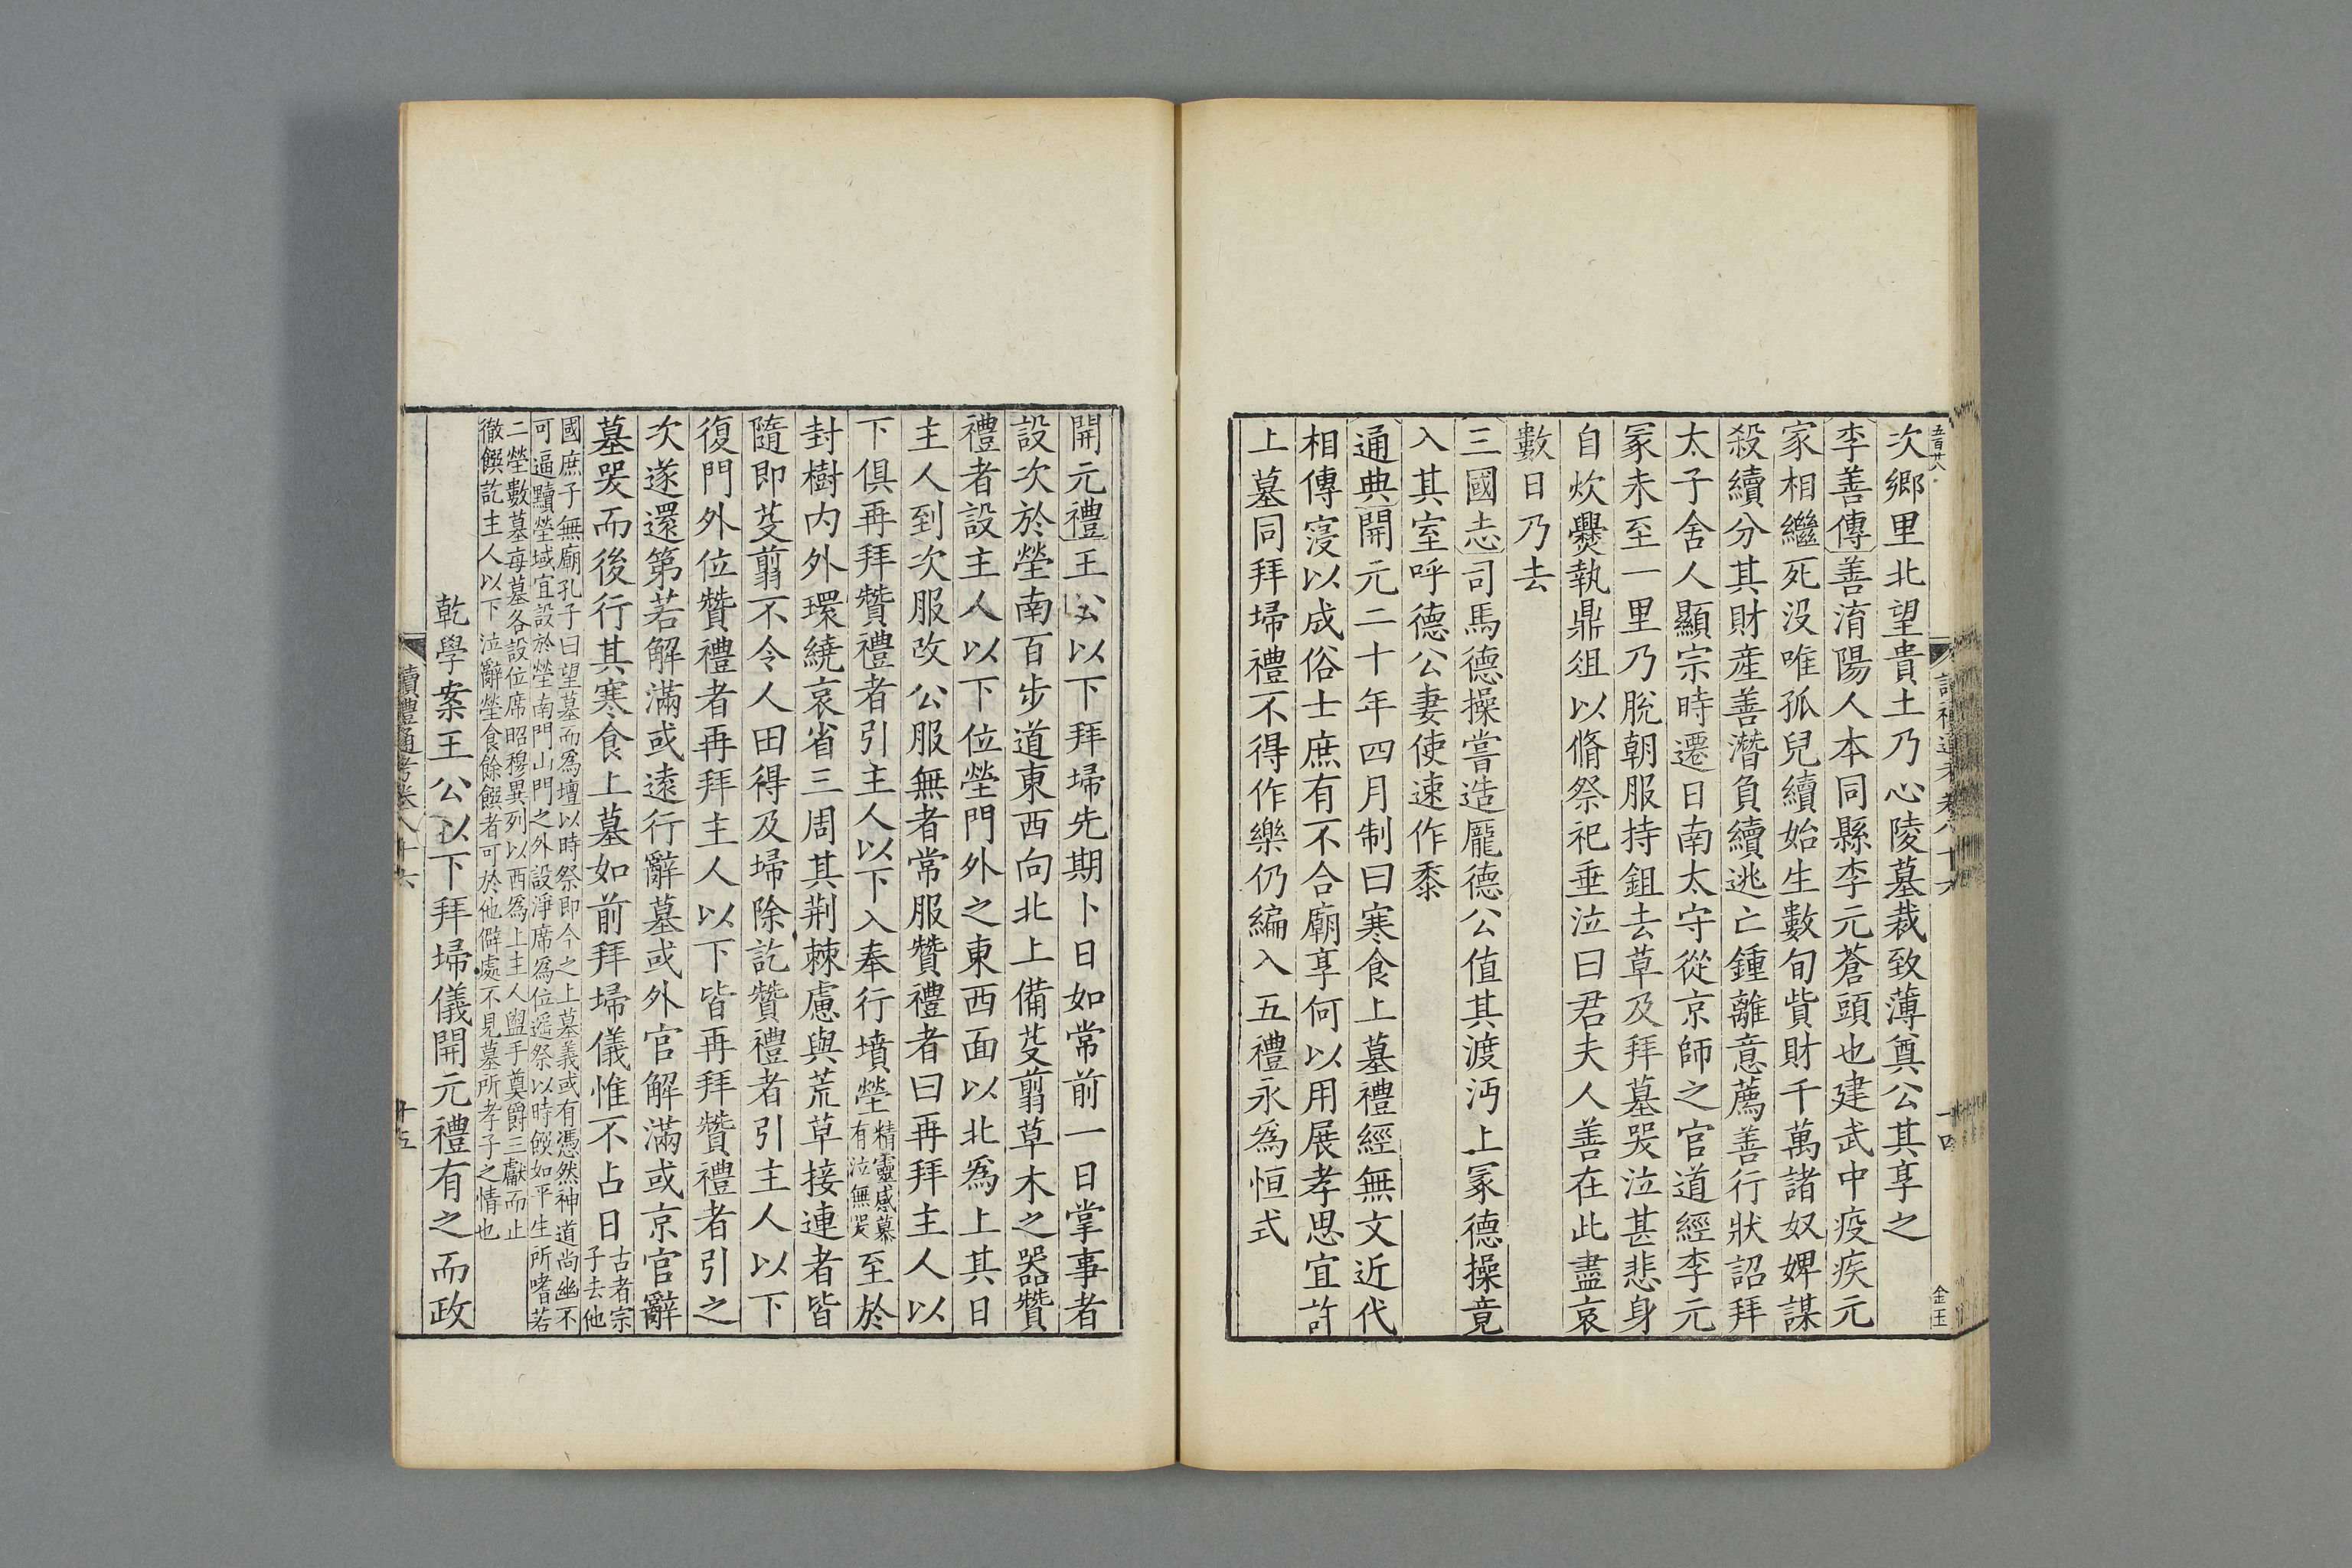 五百廿八
次鄉里北望貴土乃心陵墓裁致薄奠公其享之
李善傳善淯陽人本同縣李元蒼頭也建武中疫疾元
家相繼死沒唯孤兒續始生數旬貲財千萬諸奴婢謀
殺續分其財産善潛負續逃亡鍾離意薦善行狀詔拜
太子舍人顯宗時遷日南太守從京師之官道經李元
冢未至一里乃脫朝服持鉏去草及拜墓哭泣甚悲身
自炊爨執鼎俎以脩祭祀垂泣曰君夫人善在此盡哀
數日乃去
三國志司馬德操嘗造龐德公值其渡沔上冢德操竟
入其室呼德公妻使速作黍
通典開元二十年四月制曰寒食上墓禮經無文近代
相傳寖以成俗士庶有不合廟享何以用展孝思宜許
上墓同拜埽禮不得作樂仍編入五禮永爲恒式
開元禮王公以下拜埽先期卜日如常前一日掌事者
設次於塋南百步道東西向北上備芟翦草木之器贊
禮者設主人以下位塋門外之東西面以北爲上其日
主人到次服改公服無者常服贊禮者曰再拜主人以
下俱再拜贊禮者引主人以下入奉行墳塋精靈感慕有泣無哭至於
封樹内外環繞哀省三周其荆棘慮與荒草接連者皆
隨即芟翦不令人田得及埽除訖贊禮者引主人以下
復門外位贊禮者再拜主人以下皆再拜贊禮者引之
次遂還第若解滿或遠行辭墓或外官解滿或京官辭
墓哭而後行其寒食上墓如前拜埽儀惟不占日古者宗子去他
國庶子無廟孔子曰望墓而爲壇以時祭即今之上墓義或有憑然神道尚幽不
可逼黷塋域宜設於塋南門山門之外設淨席爲位遥祭以時饌如平生所嗜若
二塋數墓每墓各設位席昭穆異列以西爲上主人盥手奠爵三獻而止
徹饌訖主人以下泣辭塋食餘饌者可於他僻處不見墓所孝子之情也
乾學案王公以下拜埽儀開元禮有之而政
讀禮通考卷八十六
十五
金玉